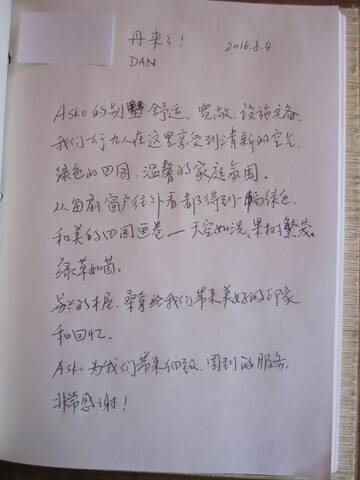 丹来了！ 2016.8.4
DAN
Asko 的别墅 舒适、宽敞、设施完备.
我们一行九人在这里享受到清新的空气
绿色的田园、温馨的家庭氛围.
从每扇窗户往外看都得到一幅绿色
和美的田园画卷—天空如洗、果树繁茂、
绿草如茵。
芬兰木屋、桑拿给我们带来美好的印象
和回忆.
Asko 为我们带来细致、周到的服务,
非常感谢！